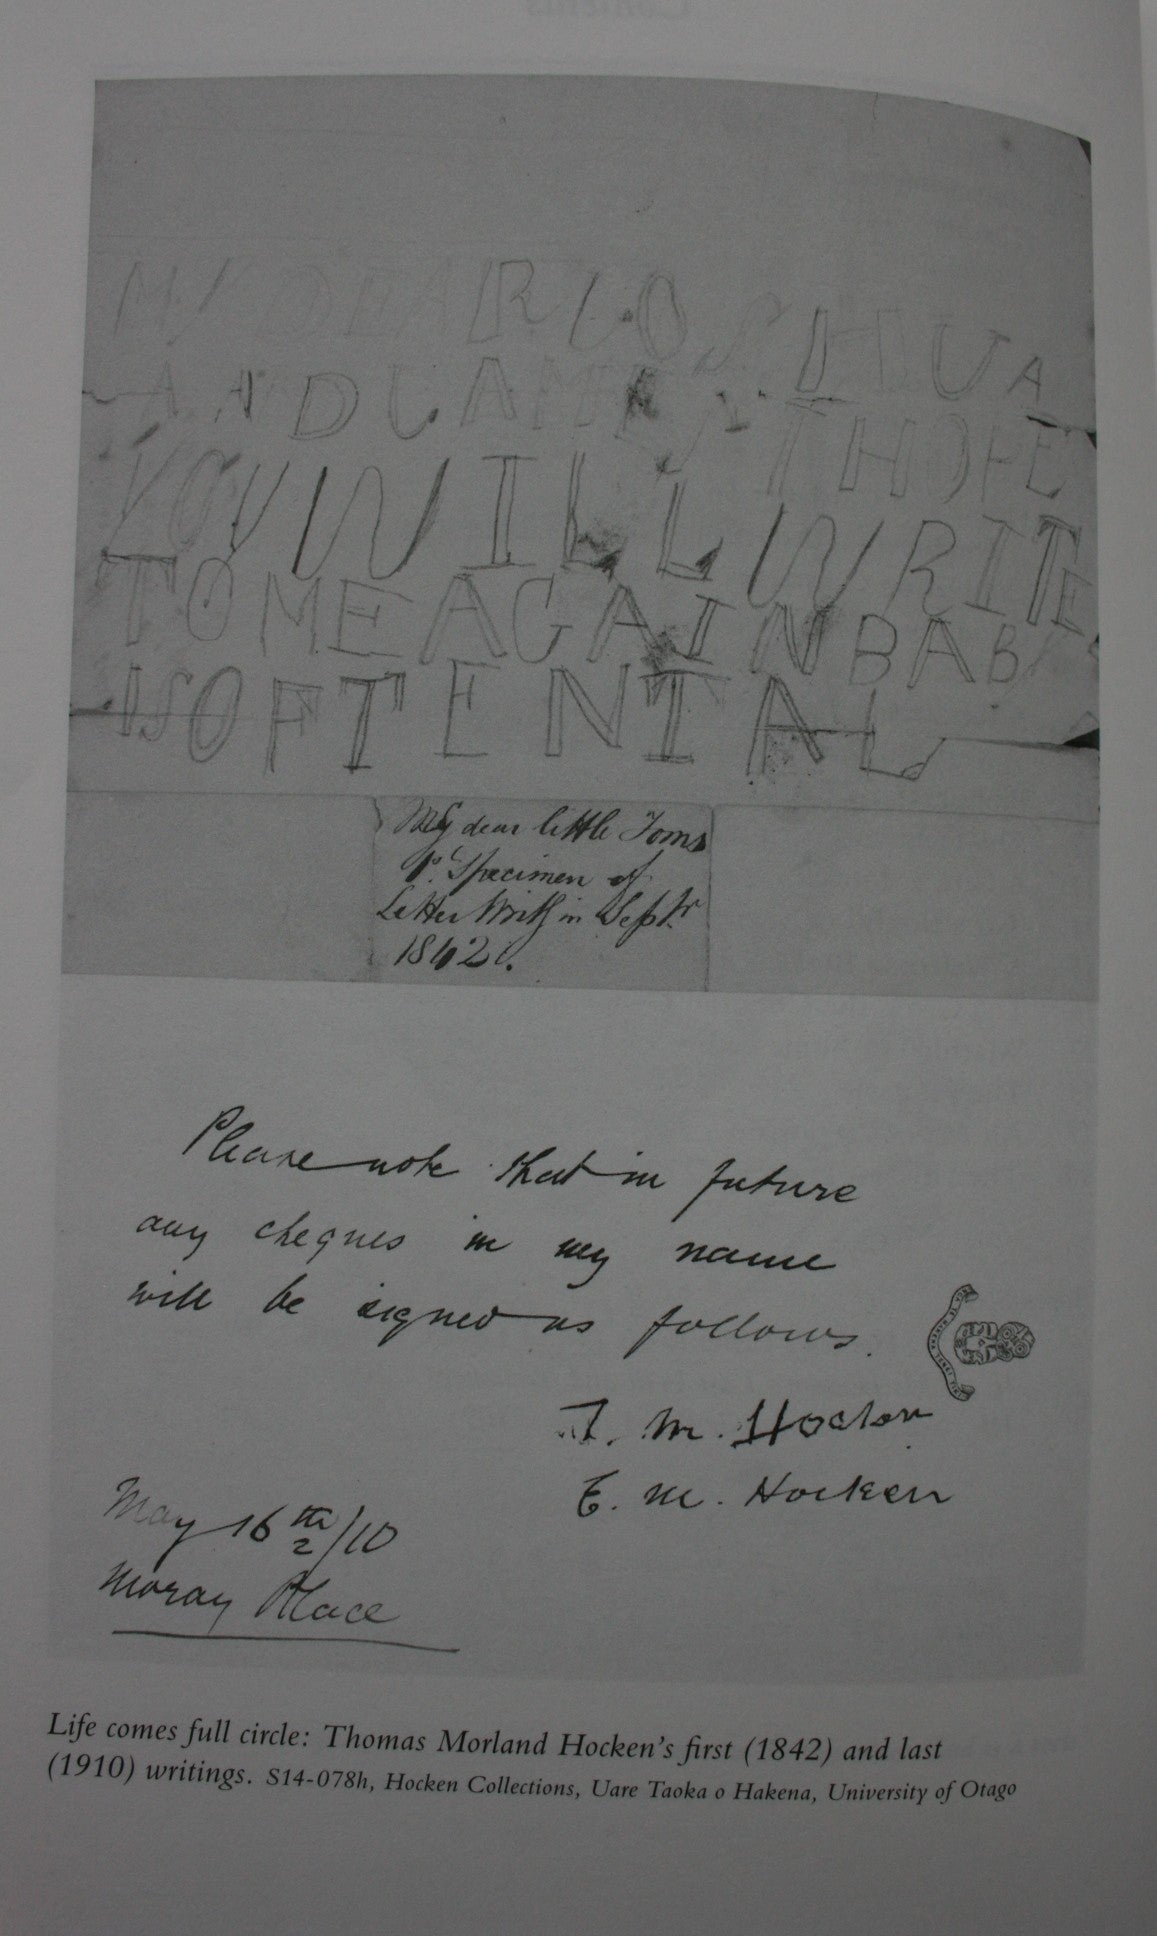 MY DEAR JOSHUA
AND JAMES I HOPE
YOU WILL WRITE
TO ME AGAIN BABY
IS OFTEN TAL
My dear little Toms
1st Specimen of
Letter Writg in Septr
1842.
Please note that in future
any cheques in my name
will be signed as follows.
T. M. Hocken
E. M. Hocken
May 16th/10
Moray Place
Life comes full circle: Thomas Morland Hocken's first (1842) and last
(1910) writings. S14-078h, Hocken Collections, Uare Taoka o Hakena, University of Otago